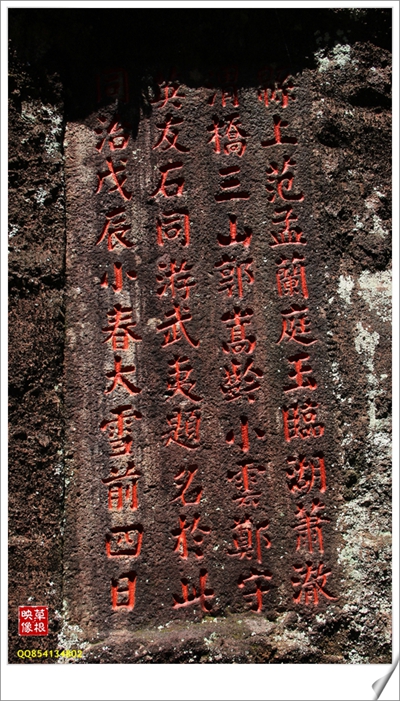 上范孟蘭庭玉臨湖蕭澂
橋三山郭嵩齡小雲鄭守
友石同游武夷題名於此
同治戊辰小春大雪前四日
草根
映像
QQ854134802